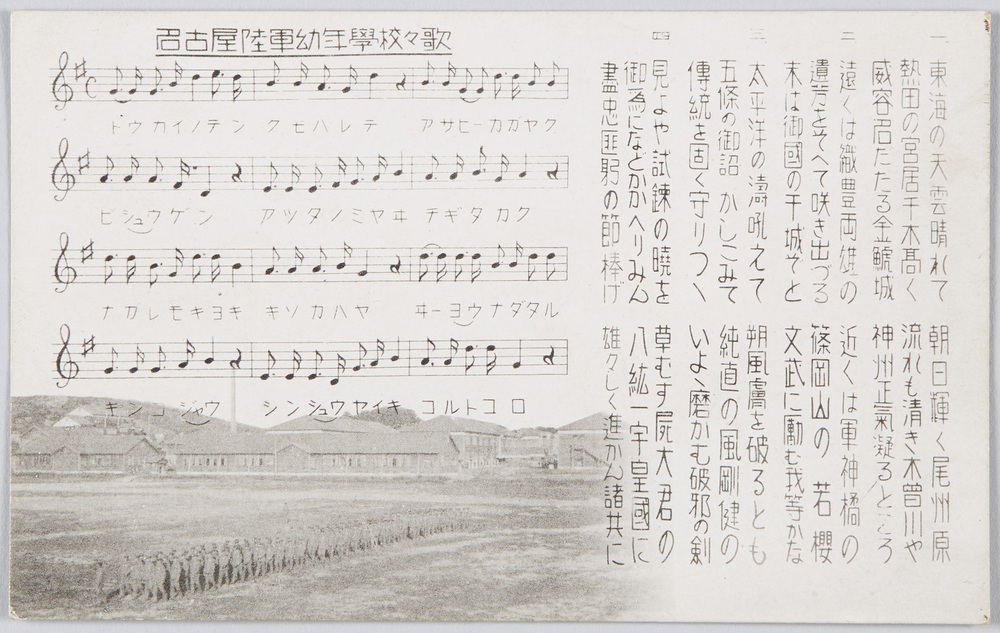 名古屋陸軍幼年學校々歌
トウカイノテン クモハレテ アサヒーカガヤク
ビシュウゲン アツタノミヤヰ チギタカク
ナカレモキヨキ キソカハヤ ヰーヨウナダタル
キンコジャウ シンシュウセイキ コルトコロ
一
東海の天雲晴れて 朝日輝く尾州原
熱田の宮居千木髙く 流れも清き木曽川や
威容名だたる金鯱城 神州正氣凝るところ
二
遠くは織豊両雄の 近くは軍神橘の
遺芳をそへて咲き出づる 篠岡山の若櫻
末は御國の干城ぞと 文武に勵む我等かな
三
太平洋の濤吼えて 朔風膚を破るとも
五條の御詔かしこみて 純直の風剛健の
傳統を固く守りつゝ いよゝ磨かむ破邪の劍
四
見よや試鍊の曉を 草むす屍大君の
御為になどかかへりみん 八紘一宇皇國に
盡忠匪躬の節捧げ 雄々しく進かん諸共に